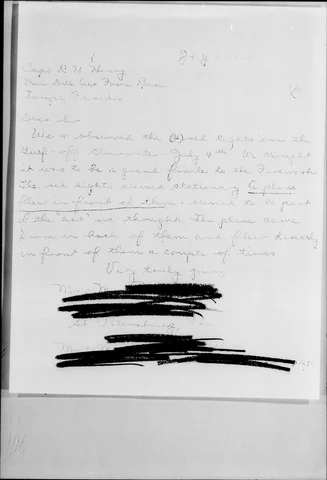 Capt R. H. Henry
Mac Dill Air Force Base
Tampa, Florida
Dear Sir:
We observed the (4) red lights over the
Gulf off Clearwater July 4th. We thought
it was to be a grand finale to the Fireworks
The red lights seemed stationary. A plane
flew in front of them & seemed to be part
of the "act" we thought. The plane came
from in back of them and flew directly
in front of them a couple of times
Very truly yours,
St. Petersburg,